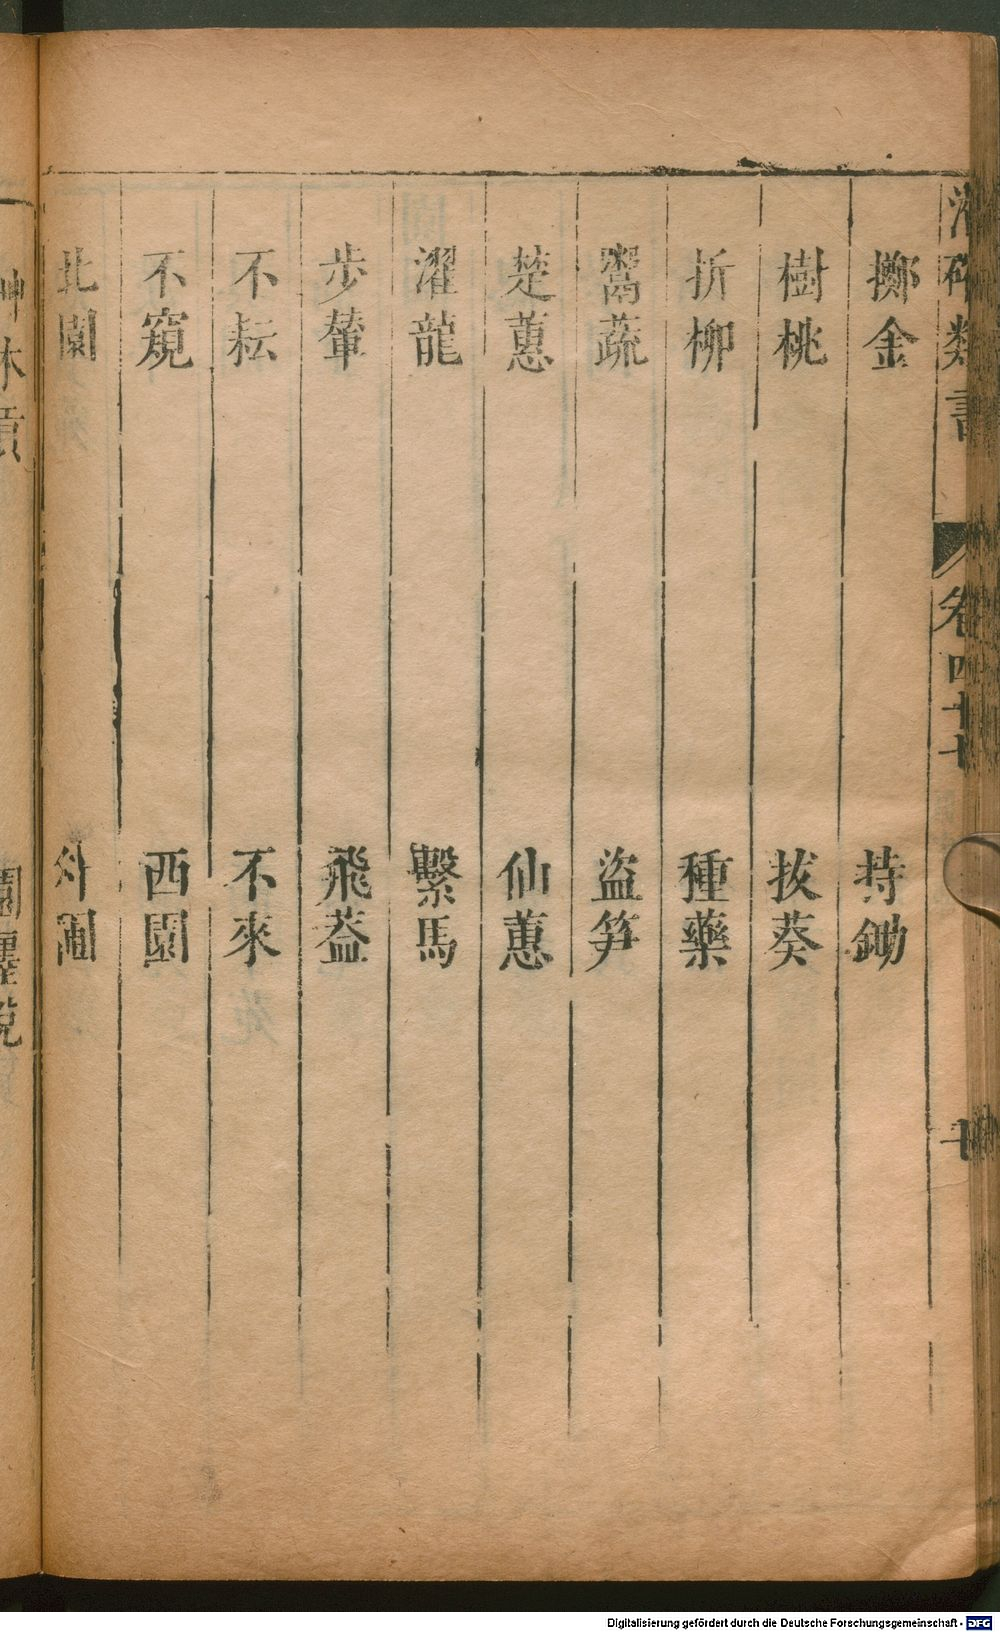 類書
卷四十七
擲金 持鋤
樹桃 拔葵
折柳 種藥
鬻蔬 盜笋
楚蕙 仙蕙
濯龍 繫馬
步輦 飛葢
不耘 不來
不窺 西園
北園
Digitalisierung gefördert durch die Deutsche Forschungsgemeinschaft - DFG